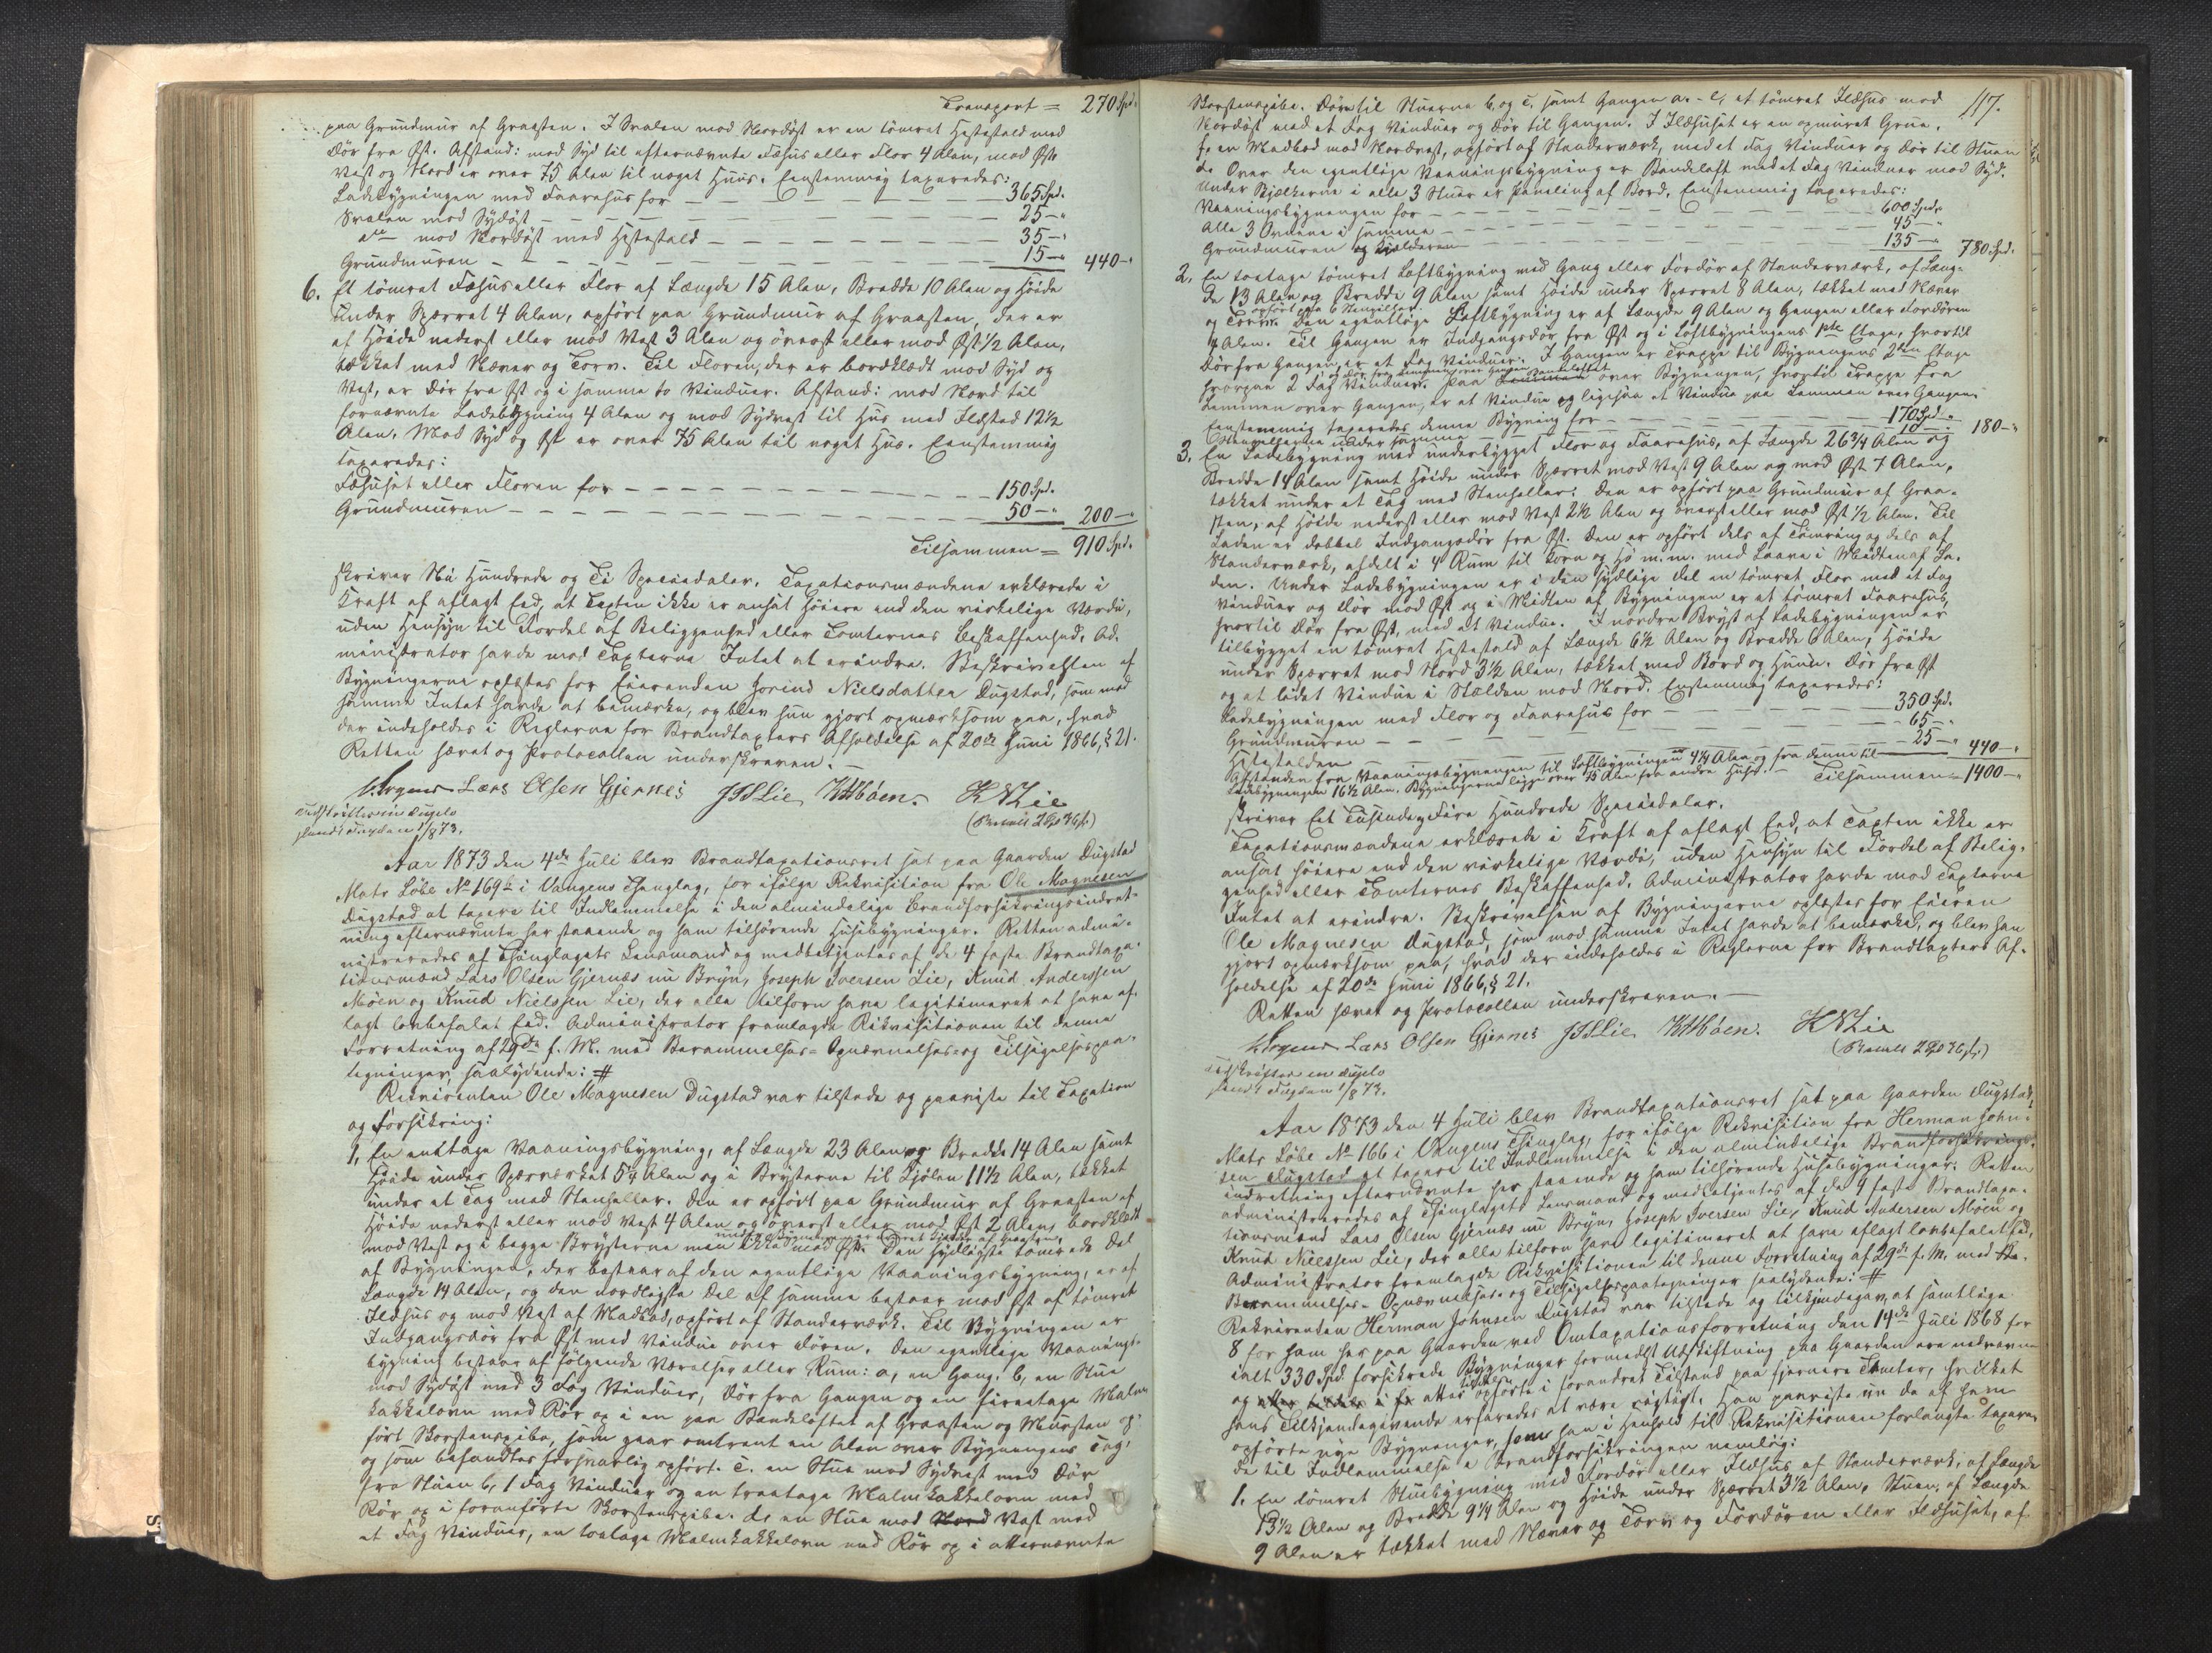 Transport = 270 Spd.
paa Grundmuur af Graasten. I Svalen mod Nordøst er en tømret Hestestald med
Dør fra Øst. Afstand: mod Syd til efternævnte Fæhus eller Flor 4 Alen, mod Øst
Vest og Nord er over 75 Alen til noget Huus. Eenstemmig taxeredes:
Ladebygningen med Faarehus for — — — — — — 365 Spd.
Svalen mod Sydøst — — — — — — 25 — "
dto mod Nordøst med Hestestald — — — — — 35 — "
Grundmuren — — — — — — — 15 — " 440 — "
6. Et tømret Fæhus eller Flor af Længde 15 Alen, Bredde 10 Alen og Høide
under Sperret 4 Alen, opført paa Grundmuur af Graasten, der er
af Høide nederst eller mod Vest 3 Alen og øverst eller mod Øst ½ Alen,
tækket med Næver og Torv. Til Floren, der er bordklædt mod Syd og
Vest, er Dør fra Øst og i samme to Vinduer. Afstand: mod Nord til
fornævnte Ladebygning 4 Alen og mod Sydvest til Hus med Ildsted 12½
Alen. Mod Syd og Øst er over 75 Alen til noget Hus. Eenstemmig
taxeredes:
Fæhuset eller Floren for — — — — — — 150 Spd.
Grundmuren — — — — — — — 50 — " 200 — "
Tilsammen = 910 Spd.
skriver Ni Hundrede og Ti Speciedaler. Taxationsmændene erklærede i
Kraft af aflagt Eed, at Taxten ikke er ansat høiere end den virkelige Værdi,
uden Hensyn til Fordel af Beliggenhed eller Tomternes Beskaffenhed. Ad-
ministrator havde mod Taxterne Intet at erindre. Beskrivelsen af
Bygningerne oplæstes for Eierenden Gorind Nielsdatter Dugstad, som mod
samme Intet havde at bemærke, og blev hun gjort opmærksom paa, hvad
der indeholdes i Reglerne for Brandtaxters Afholdelse af 20de Juni 1866, § 21.
Retten hævet og Protocollen underskreven. —
Lars Olsen Gjernes JISLie KAMøen. KNLie
Udskrifter in duplo
sendt Fogden 1/8 73.
(Betalt 2 Spd 76 s.)
Aar 1873 den 4de Juli blev Brandtaxationsret sat paa Gaarden Dugstad
Matr Løbe No 169b i Vangens Thinglag, for ifølge Rekvisition fra Ole Magnesen
Dugstad at taxere til Indlemmelse i den almindelige Brandforsikringsindret-
ning efternævnte her staaende og ham tilhørende Husebygninger. Retten admi-
nistreredes af Thinglagets Lensmand og medbetjentes af de 4 faste Brandtaxa-
tionsmænd Lars Olsen Gjernæs nu Bryn, Joseph Iversen Lie, Knud Anderssen
Møen og Knud Nielssen Lie, der alle tilforn have legitimeret at have af-
lagt lovbefalet Eed. Administrator fremlagde Rekvisitionen til denne
Forretning af 29de f. M. med Berammelses- Opnævnelses- og Tilsigelsespaa-
tegninger, saalydende: #
Rekvirenten Ole Magnesen Dugstad var tilstede og paaviste til Taxation
og Forsikring:
1, En enetage Vaaningsbygning, af Længde 23 Alen og Bredde 14 Alen samt
Høide under Sperværket 5¼ Alen og i Brysterne til Kjølen 11½ Alen, tækket
under et Tag med Stenheller. Den er opført paa Grundmuur af Graasten af
Høide nederst eller mod Vest 4 Alen og øverst eller mod Øst 2 Alen, bordklædt
mod Vest og i begge Brysterne men mod Øst. Den sydligste tømrede Del
af Bygningen, der bestaar af den egentlige Vaaningsbygning, er af
Længde 14 Alen, og den nordligste Del af samme bestaar mod Øst af tømret
Ildhus og mod Vest af Madbod, opført af Standerværk. Til Bygningen er
Indgangsdør fra Øst med Vindue over Døren. Den egentlige Vaanings-
bygning bestaar af følgende Værelser eller Rum: a, en Gang. b, en Stue
mod Sydøst med 3 Fag Vinduer, Dør fra Gangen og en fireetage Malm
kakkelovn med Rør op i en paa Bandeloftet af Graasten og Mursten op-
ført Skorstenspibe, som gaar omtrent en Alen over Bygningens Tag,
og som befandtes forsvarlig opført. c. en Stue mod Sydvest med Dør
fra Stuen b, 1 Fag Vinduer og en treetage Malmkakkelovn med
Rør op i foranførte Skorstenspibe. d. en Stue mod Nord Vest med
et Fag Vinduer, en toetage Malmkakkelovn med Rør op i efternævnte
117.
Skorstenspibe. Dør til Stuerne b, og c, samt Gangen a. — e, et tømret Ildhus mod
Nordøst med et Fag Vinduer og Dør til Gangen. I Ildhuset er en opmuret Grue.
f, en Madbod mod Nordvest, opført af Standerværk, med et Fag Vinduer og Dør til Stuen
d. Over den egentlige Vaaningsbygning er Bandeloft med et Fag Vinduer mod Syd.
Under Bjelkerne i alle 3 Stuer er Paneling af Bord. Eenstemmig taxeredes:
Vaaningsbygningen for — — — — — — 600 Spd.
Alle 3 Ovnene i samme — — — — — — 45 — "
Grundmuren og Kjelderen — — — — — 135 — " 780 Spd.
2. En toetage tømret Loftbygning med Gang eller Fordør af Standerværk, af Læng-
de 13 Alen og Bredde 9 Alen samt Høide under Sperret 8 Alen, tækket med Næver
opført paa 6 Stenpillarer
og Torv. Den egentlige Loftbygning er af Længde 9 Alen og Gangen eller Fordøren
4 Alen. Til Gangen er Indgangsdør fra Øst og i Loftbygningens 1ste Etage, hvortil
Dør fra Gangen, er et Fag Vinduer. I Gangen er Trappe til Bygningens 2den Etage
hvorpaa 2 Fag Vinduer. Paa over Bygningen, hvortil Trappe fra
Lemmen over Gangen, er et Vindue og ligesaa et Vindue paa Lemmen over Gangen.
Eenstemmig taxeredes denne Bygning for — — — — 170 Spd.
under samme — — — — 10 — " 180 — "
3. En Ladebygning med underbygget Flor og Faarehus, af Længde 26¾ Alen og
Bredde 14 Alen samt Høide under Sperret mod Vest 9 Alen og mod Øst 7 Alen,
tækket under et Tag med Stenheller. Den er opført paa Grundmuur af Graa-
sten, af Høide nederst eller mod Vest 2½ Alen og øverst eller mod Øst ½ Alen. Til
Laden er dobbel Indgangsdør fra Øst. Den er opført dels af Tømring og dels af
Standerværk, afdelt i 4 Rum til Korn og Hø m. m. med Laave i Midten af La-
den. Under Ladebygningen er i den sydlige Del en tømret Flor med et Fag
Vinduer og Dør mod Øst og i Midten af Bygningen er et tømret Faarehus,
hvortil Dør fra Øst, med et Vindue. I nordre Bryst af Ladebygningen er
tilbygget en tømret Hestestald af Længde 6½ Alen og Bredde 6 Alen, Høide
under Sperret mod Nord 3½ Alen, tækket med Bord og Huun. Dør fra Øst
og et lidet Vindue i Stalden mod Nord. Eenstemmig taxeredes:
Ladebygningen med Flor og Faarehus for — — — — 350 Spd.
Grundmuren — — — — — — — 65 — "
Hestestalden — — — — — — — 25 — " 440 — "
Afstanden fra Vaaningsbygningen til Loftbygningen 4¼ Alen og fra denne til
Ladebygningen 16½ Alen. Bygningerne ligge over 75 Alen fra andre Huse. — Tilsammen = 1400 — "
skriver Eet Tusinde og Fire Hundrede Speciedaler.
Taxationsmændene erklærede i Kraft af aflagt Eed, at Taxten ikke er
ansat høiere end den virkelige Værdi, uden Hensyn til Fordel af Belig-
genhed eller Tomternes Beskaffenhed. Administrator havde mod Taxterne
Intet at erindre. Beskrivelsen af Bygningerne oplæstes for Eieren
Ole Magnesen Dugstad, som mod samme Intet havde at bemærke, og blev han
gjort opmærksom paa, hvad der indeholdes i Reglerne for Brandtaxters Af-
holdelse af 20de Juni 1866, § 21.
Retten hævet og Protocollen underskreven. —
Lars Olsen Gjernes JISLie KAMøen. KNLie
(Betalt 2 Spd 76 s.)
Udskrifter in duplo
sendt Fogden 1/8 73.
Aar 1873 den 4 Juli blev Brandtaxationsret sat paa Gaarden Dugstad,
Matr Løbe No 166 i Vangens Thinglag, for ifølge Rekvisition fra Herman John-
sen Dugstad at taxere til Indlemmelse i den almindelige Brandforsikrings-
indretning efternævnte her staaende og ham tilhørende Husebygninger. Retten
administreredes af Thinglagets Lensmand og medbetjentes af de 4 faste Brandtaxa-
tionsmænd Lars Olsen Gjernæs nu Bryn, Joseph Iversen Lie, Knud Andersen Møen og
Knud Nielssen Lie, der alle tilforn have legitimeret at have aflagt lovbefalet Eed.
Administrator fremlagde Rekvisitionen til denne Forretning af 29de f. M. med
Berammelses- Opnævnelses- og Tilsigelsespaategninger saalydende: #
Rekvirenten Herman Johnsen Dugstad var tilstede og tilkjendegav, at samtlige
8 for ham her paa Gaarden ved Omtaxationsforretning den 14de Juli 1868 for
ialt 330 Spd. forsikrede Bygninger formedelst Udskiftning paa Gaarden ere nedrevne
og atter opførte i forandret Tilstand paa fjernere Tomter, hvilket
hans Tilkjendegivende erfaredes at være rigtigt. Han paaviste nu de af ham
opførte nye Bygninger, som han i Henhold til Rekvisitionen forlangte taxere-
de til Indlemmelse i Brandforsikringen nemlig:
1. En tømret Stuebygning med Fordør eller Ildhus af Standerværk, af Længde
13½ Alen og Bredde 9¼ Alen og Høide under Sperret 3½ Alen. Stuen, af Længde
9 Alen er tækket med Næver og Torv og Fordøren eller Ildhuset, af